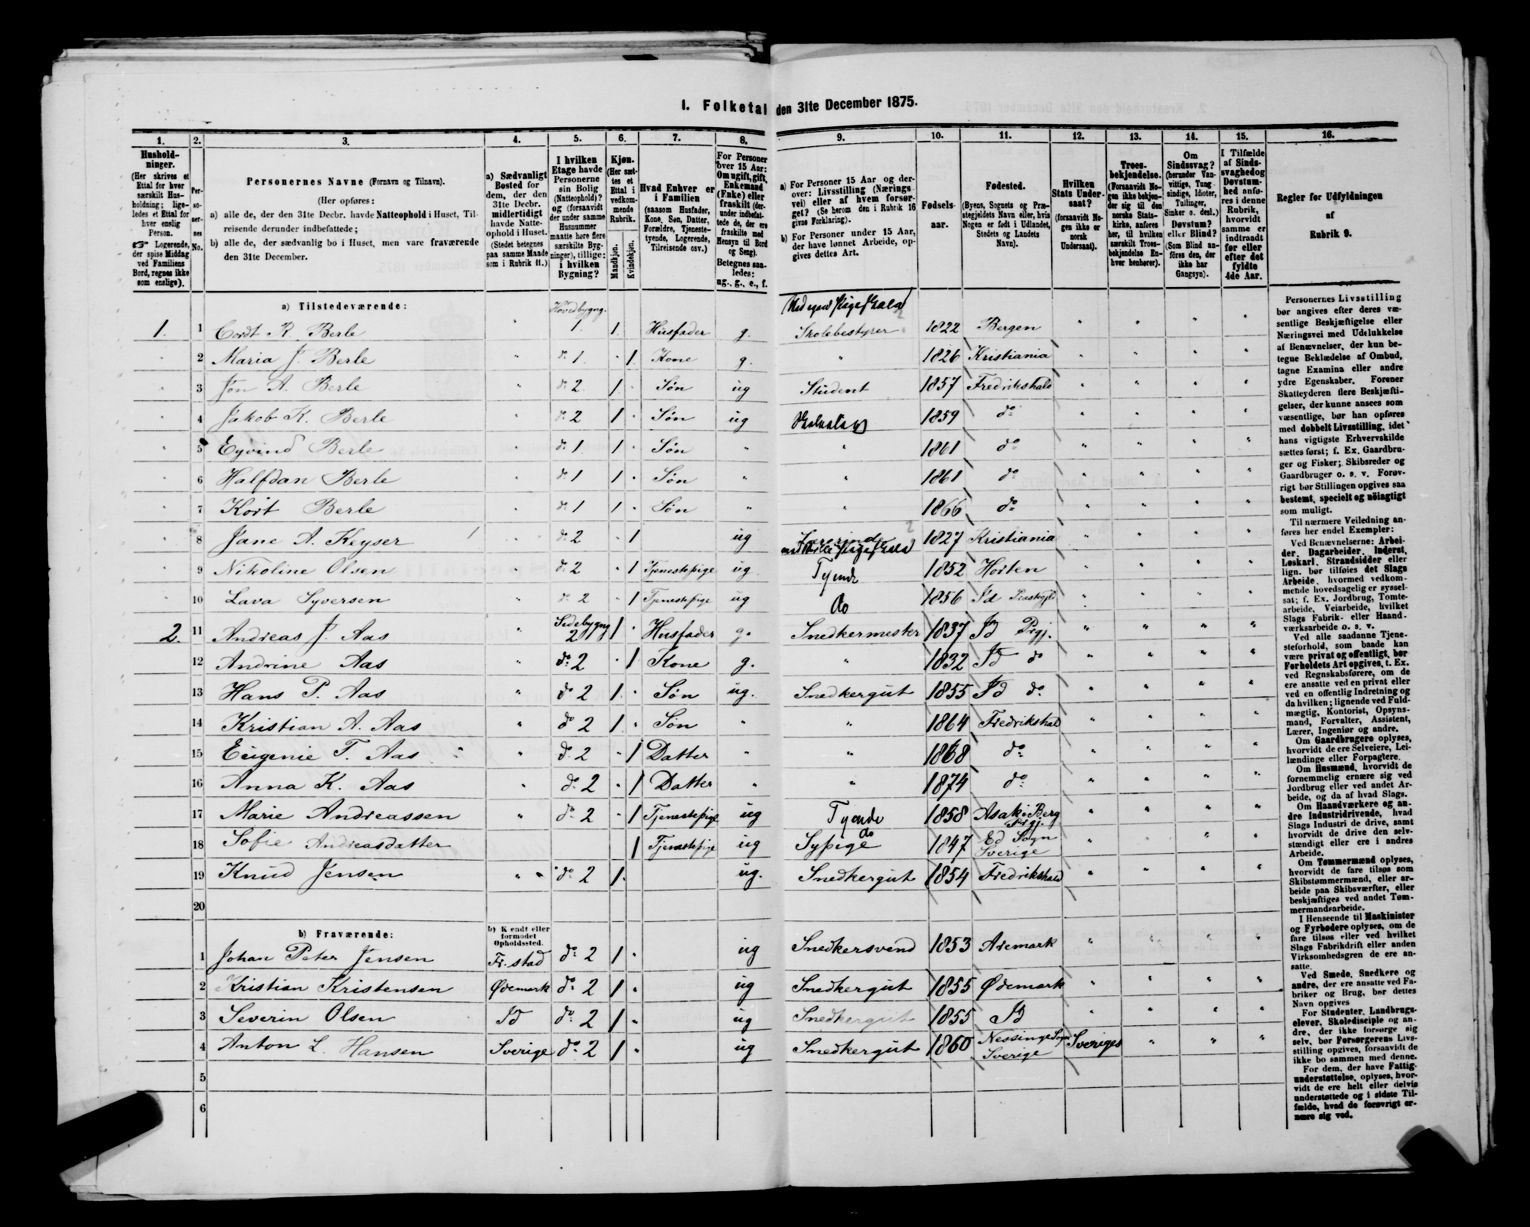 1. Folketal den 31te December 1875.
1. 2. 3. 4. 5. 6. 7. 8. 9. 10. 11. 12. 13. 14. 15. 16.
Husholdninger.
(Her skrives et Ettal for hver særskilt Husholdning; ligeledes et Ettal for hver enslig Person.
☞ Logerende, der spise Middag ved Familiens Bord, regnes ikke som enslige).
Personernes No.
Personernes Navne (Fornavn og Tilnavn).
(Her opføres:
a) alle de, der den 31te Decbr. havde Natteophold i Huset, Tilreisende derunder indbefattede;
b) alle de, der sædvanlig bo i Huset, men vare fraværende den 31te December.
a) Sædvanligt Bosted for dem, der den 31te Decbr. midlertidigt havde Natteophold i Huset.
(Stedet betegnes paa samme Maade som i Rubrik 11.)
I hvilken Etage havde Personerne sin Bolig (Natteophold)? og (forsaavidt der under samme Husnummer maatte høre flere særskilte Bygninger), tillige: i hvilken Bygning?
Kjøn.
(Her sættes et Ettal i vedkommende Rubrik.
Mandkjøn.
Kvindekjøn.
Hvad Enhver er i Familien
(saasom Husfader, Kone, Søn, Datter, Forældre, Tjenestetyende, Logerende, Tilreisende osv.)
For Personer over 15 Aar: Om ugift, gift, Enkemand (Enke) eller fraskilt (derunder indbefattede de, der ere fraskilte med Hensyn til Bord og Seng).
Betegnes saaledes:
ug., g., e., f.
a) For Personer 15 Aar og derover: Livsstilling (Næringsvei) eller af hvem forsørget? (Se herom den i Rubrik 16 givne Forklaring).
b) For Personer under 15 Aar, der have lønnet Arbeide, opgives dettes Art.
Fødselsaar.
Fødested.
(Byens, Sognets og Præstegjeldets Navn eller, hvis Nogen er født i Udlandet, Stedets og Landets Navn).
Hvilken Stats Undersaat?
(forsaavidt Nogen ikke er norsk Undersaat).
Troesbekjendelse.
(Forsaavidt Nogen ikke bekjender sig til den norske Statskirke, anføres her, til hvilken særskilt Troesbekjendelse Enhver henhører).
Om Sindssvag? (herunder Vanvittige, Tungsindige, Idioter, Tullinger, Sinker o. desl.) Døvstum? eller Blind? (Som Blind anføres den, der ikke har Gangsyn).
I Tilfælde af Sindssvaghed og Døvstumhed anføres i denne Rubrik, hvorvidt samme er indtraadt før eller efter det fyldte 4de Aar.
Regler for Udfyldningen af Rubrik 9.
a) Tilstedeværende:
1. 1 Cordt K Berle " Hovedbygng. 1 1 · Husfader g. Med egen Pigeskole Skolebestyrer 1822 Bergen " " " "
2 Maria J. Berle " do 1 · 1 Kone g. " 1826 Kristiania " " " "
3 Jon A. Berle " do 2 1 · Søn ug Student 1857 Fredrikshald " " " "
4 Jakob K Berle " do 2 1 · Søn ug 1859 do " " " "
5 Eyvind Berle " do 1 1 · Søn " " 1861 do " " " "
6 Halfdan Berle " do 1 1 · Søn " " 1861 do " " " "
7 Kort Berle " do 1 1 · Søn " " 1866 do " " " "
8 Jane A. Keyser " do 2 · 1 ug 1827 Kristiania " " " "
9 Nikoline Olsen " do 2 · 1 Tjenestepige ug. Tyende 1852 Horten " " " "
10 Lava Syversen " do 2 · 1 Tjenestepige ug do 1856 Id " " " "
2. 11 Andreas J Aas " Sidebygng 2 1 · Husfader g. Snedkermester 1837 Id Prgj. " " " "
12 Andrine Aas " do 2 · 1 Kone g. " 1832 Id do " " " "
13 Hans P. Aas " do 2 1 · Søn ug. Snedkergut 1855 Id do " " " "
14 Kristian A. Aas " do 2 1 · Søn " " 1864 Fredrikshald " " " "
15 Eugenie T. Aas " do 2 · 1 Datter " " 1868 do " " " "
16 Anna K. Aas " do 2 · 1 Datter " " 1874 do " " " "
17 Marie Andreassen " do 2 · 1 Tjenestepige ug Tyende 1858 Asak i Berg Prgj. " " " "
18 Sofie Andreasdatter 1 Tjenestepige ug Sypige do 1847 Ed Sogn Sverige " " "
19 Knud Jensen " " do 2 1 · ug. Snedkergut 1854 Fredrikshald " " " "
20
b) Fraværende:
b) Kjendt eller formodet Opholdssted.
1 Johan Peter Jensen Fr.stad do 2 1 · ug Snedkersvend 1853 Aremark " " " "
2 Kristian Kristensen Ødemark do 2 1 · ug Snedkergut 1855 Ødemark " " " "
3 Severin Olsen Id do 2 1 · ug Snedkergut 1855 Id " " " "
4 Anton L. Hansen Sverige do 2 1 · ug Snedkergut 1860 Sogn Sverige Sveriges " " "
5
6
Personernes Livsstilling bør angives efter deres væsentlige Beskjæftigelse eller Næringsvei med Udelukkelse af Benævnelser, der kun betegne Beklædelse af Ombud, tagne Examina eller andre ydre Egenskaber. Forener Skatteyderen flere Beskjæftigelser, der kunne ansees som væsentlige, bør han opføres med dobbelt Livsstilling, idet hans vigtigste Erhvervskilde sættes først; f. Ex. Gaardbruger og Fisker; Skibsreder og Gaardbruger o. s. v. Forøvrigt bør Stillingen opgives saa bestemt, specielt og nøiagtigt som muligt.
Til nærmere Veiledning anføres her endel Exempler:
Ved Benævnelserne: Arbeider, Dagarbeider, Inderst, Løskarl, Strandsidder eller lign. bør tilføies det Slags Arbeide, hvormed vedkommende hovedsagelig er sysselsat; f. Ex. Jordbrug, Tomtearbeide, Veiarbeide, hvilket Slags Fabrik- eller Haandværksarbeide o. s. v.
Ved alle saadanne Tjenesteforhold, som baade kan være privat og offentligt, bør Forholdets Art opgives, t. Ex. ved Regnskabsførere, om de ere ansatte ved en privat eller ved en offentlig Indretning og da hvilken; lignende ved Fuldmægtig, Kontorist, Opsynsmand, Forvalter, Assistent, Lærer, Ingeniør og andre.
Om Gaardbrugere oplyses, hvorvidt de ere Selveiere, Leilændinge eller Forpagtere.
Om Husmænd, hvorvidt de fornemmelig ernære sig ved Jordbrug eller ved andet Arbeide, og da af hvad Slags.
Om Haandværkere og andre Industridrivende, hvad Slags Industri de drive, samt hvorvidt de drive den selvstændigt eller ere i andres Arbeide.
Om Tømmermænd oplyses, hvorvidt de fare tilsøs som Skibstømmermænd, eller arbeide paa Skibsværfter, eller beskjæftiges ved andet Tømmermandsarbeide.
I Henseende til Maskinister og Fyrbødere oplyses, om de fare tilsøs eller ved hvilket Slags Fabrikdrift eller anden Virksomhedsgren de ere ansatte.
Ved Smede, Snedkere og andre, der ere ansatte ved Fabriker og Brug, bør dettes Navn opgives
For Studenter, Landbrugselever, Skoledisciple og andre, der ikke forsørge sig selv, bør Forsørgerens Livsstilling opgives, forsaavidt de ikke bo sammen med denne.
For dem, der have Fattigunderstøttelse, oplyses, hvorvidt de ere helt eller delvis understøttede og i sidste Tilfælde, hvad de forøvrigt ernære sig ved.